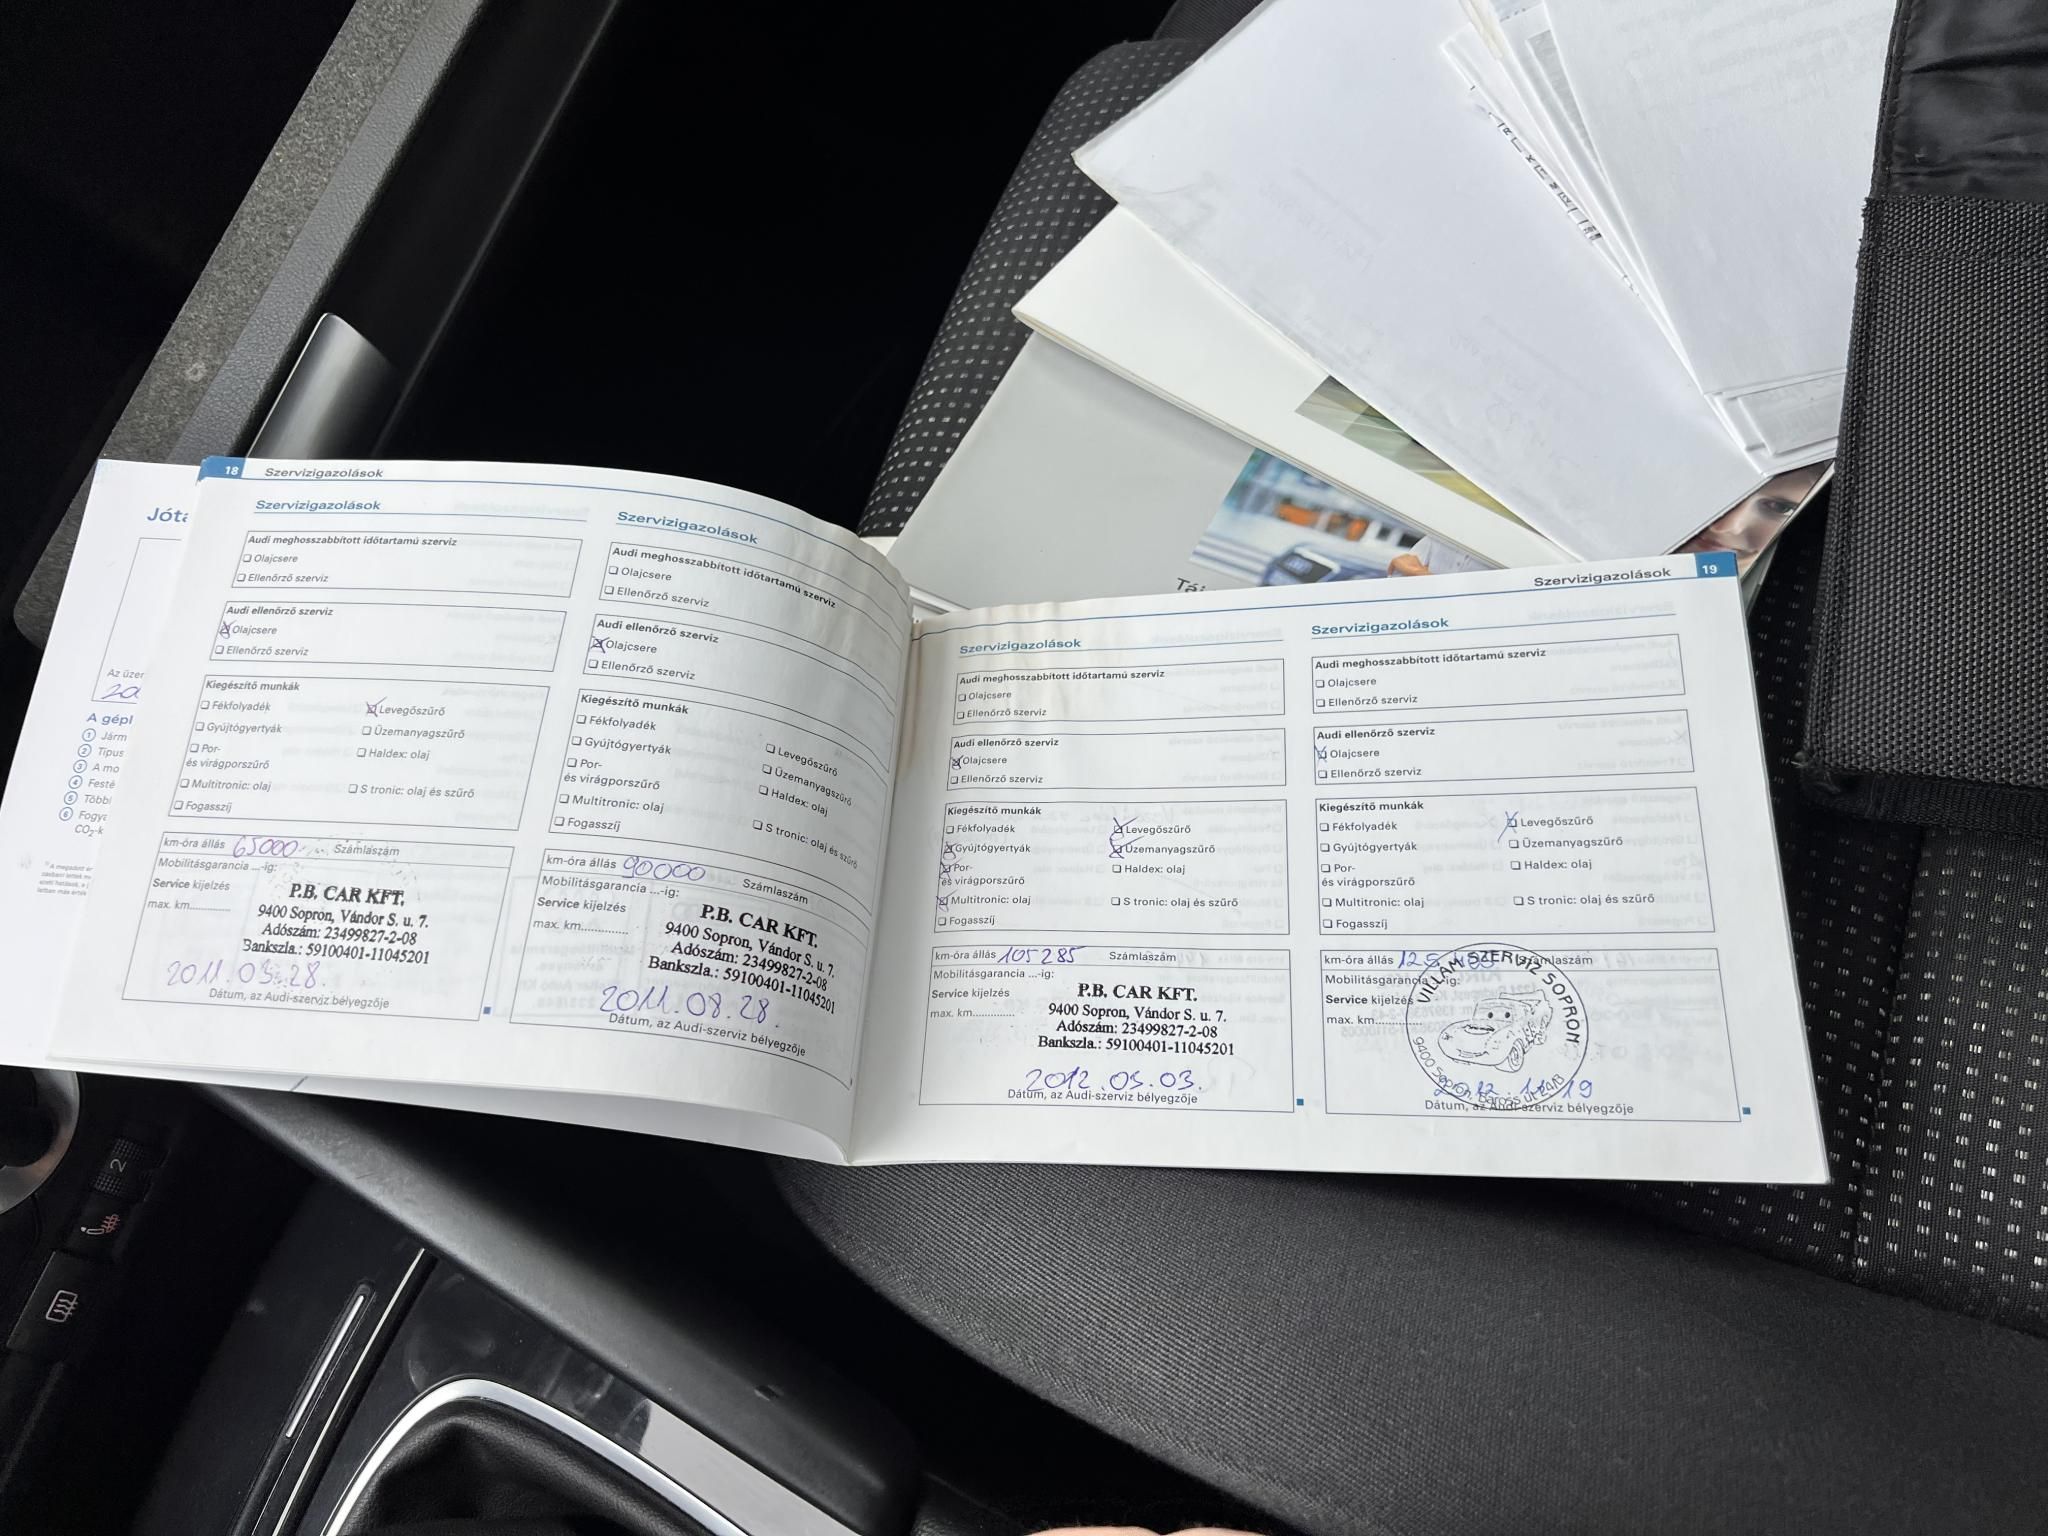 Jóta
Az üzer
20
A gépl
1 Járm
2 Típus
3 A mo
4 Festé
5 Többl
6 Fogya
CO₂-k
18 Szervizigazolások
Szervizigazolások
Audi meghosszabbított időtartamú szerviz
Olajcsere
Ellenőrző szerviz
Audi ellenőrző szerviz
Olajcsere
Ellenőrző szerviz
Kiegészítő munkák
Fékfolyadék Levegőszűrő
Gyújtógyertyák Üzemanyagszűrő
Por- Haldex: olaj
és virágporszűrő
Multitronic: olaj S tronic: olaj és szűrő
Fogasszíj
km-óra állás 65000 Számlaszám
Mobilitásgarancia ...-ig:
Service kijelzés
max. km..............
P.B. CAR KFT.
9400 Sopron, Vándor S. u. 7.
Adószám: 23499827-2-08
Bankszla.: 59100401-11045201
2011.03.28.
Dátum, az Audi-szerviz bélyegzője
Szervizigazolások
Audi meghosszabbított időtartamú szerviz
Olajcsere
Ellenőrző szerviz
Audi ellenőrző szerviz
Olajcsere
Ellenőrző szerviz
Kiegészítő munkák
Fékfolyadék Levegőszűrő
Gyújtógyertyák Üzemanyagszűrő
Por- Haldex: olaj
és virágporszűrő
Multitronic: olaj S tronic: olaj és szűrő
Fogasszíj
km-óra állás 90000 Számlaszám
Mobilitásgarancia ...-ig:
Service kijelzés
max. km..............
P.B. CAR KFT.
9400 Sopron, Vándor S. u. 7.
Adószám: 23499827-2-08
Bankszla.: 59100401-11045201
2011.08.28.
Dátum, az Audi-szerviz bélyegzője
Szervizigazolások 19
Szervizigazolások
Audi meghosszabbított időtartamú szerviz
Olajcsere
Ellenőrző szerviz
Audi ellenőrző szerviz
Olajcsere
Ellenőrző szerviz
Kiegészítő munkák
Fékfolyadék Levegőszűrő
Gyújtógyertyák Üzemanyagszűrő
Por- Haldex: olaj
és virágporszűrő
Multitronic: olaj S tronic: olaj és szűrő
Fogasszíj
km-óra állás 105285 Számlaszám
Mobilitásgarancia ...-ig:
Service kijelzés
max. km..............
P.B. CAR KFT.
9400 Sopron, Vándor S. u. 7.
Adószám: 23499827-2-08
Bankszla.: 59100401-11045201
2012.03.03.
Dátum, az Audi-szerviz bélyegzője
Szervizigazolások
Audi meghosszabbított időtartamú szerviz
Olajcsere
Ellenőrző szerviz
Audi ellenőrző szerviz
Olajcsere
Ellenőrző szerviz
Kiegészítő munkák
Fékfolyadék Levegőszűrő
Gyújtógyertyák Üzemanyagszűrő
Por- Haldex: olaj
és virágporszűrő
Multitronic: olaj S tronic: olaj és szűrő
Fogasszíj
km-óra állás Számlaszám
Mobilitásgarancia ...-ig:
Service kijelzés
max. km..............
VILLÁM SZERVIZ SOPRON
9400 Sopron, Baross út 24/B
Dátum, az Audi-szerviz bélyegzője
Táj
2